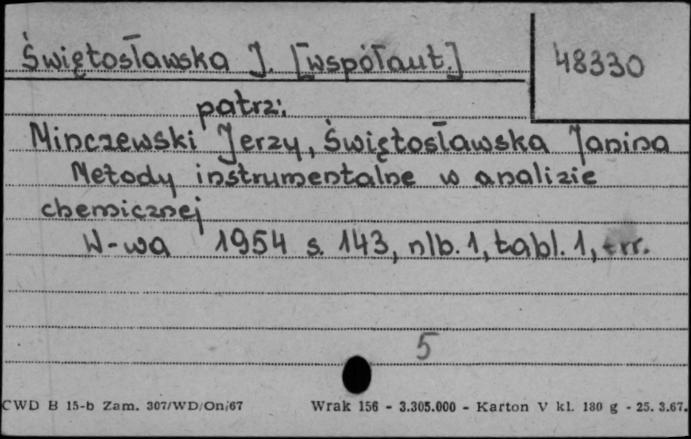 Świętosławska J. [współaut.]
48330
patrz:
Minczewski Jerzy, Świętosławska Janina
Metody instrumentalne w analizie
chemicznej
W-wa 1954 s. 143, nlb. 1, tabl. 1, err.
5
CWD B 15-b Zam. 307/WD/On/67 Wrak 156 - 3.305.000 - Karton V kl. 180 g - 25. 3.67.